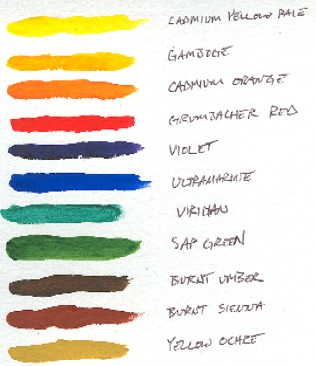 CADMIUM YELLOW PALE
GAMBOGE
CADMIUM ORANGE
GRUMBACHER RED
VIOLET
ULTRAMARINE
VIRIDIAN
SAP GREEN
BURNT UMBER
BURNT SIENNA
YELLOW OCHRE